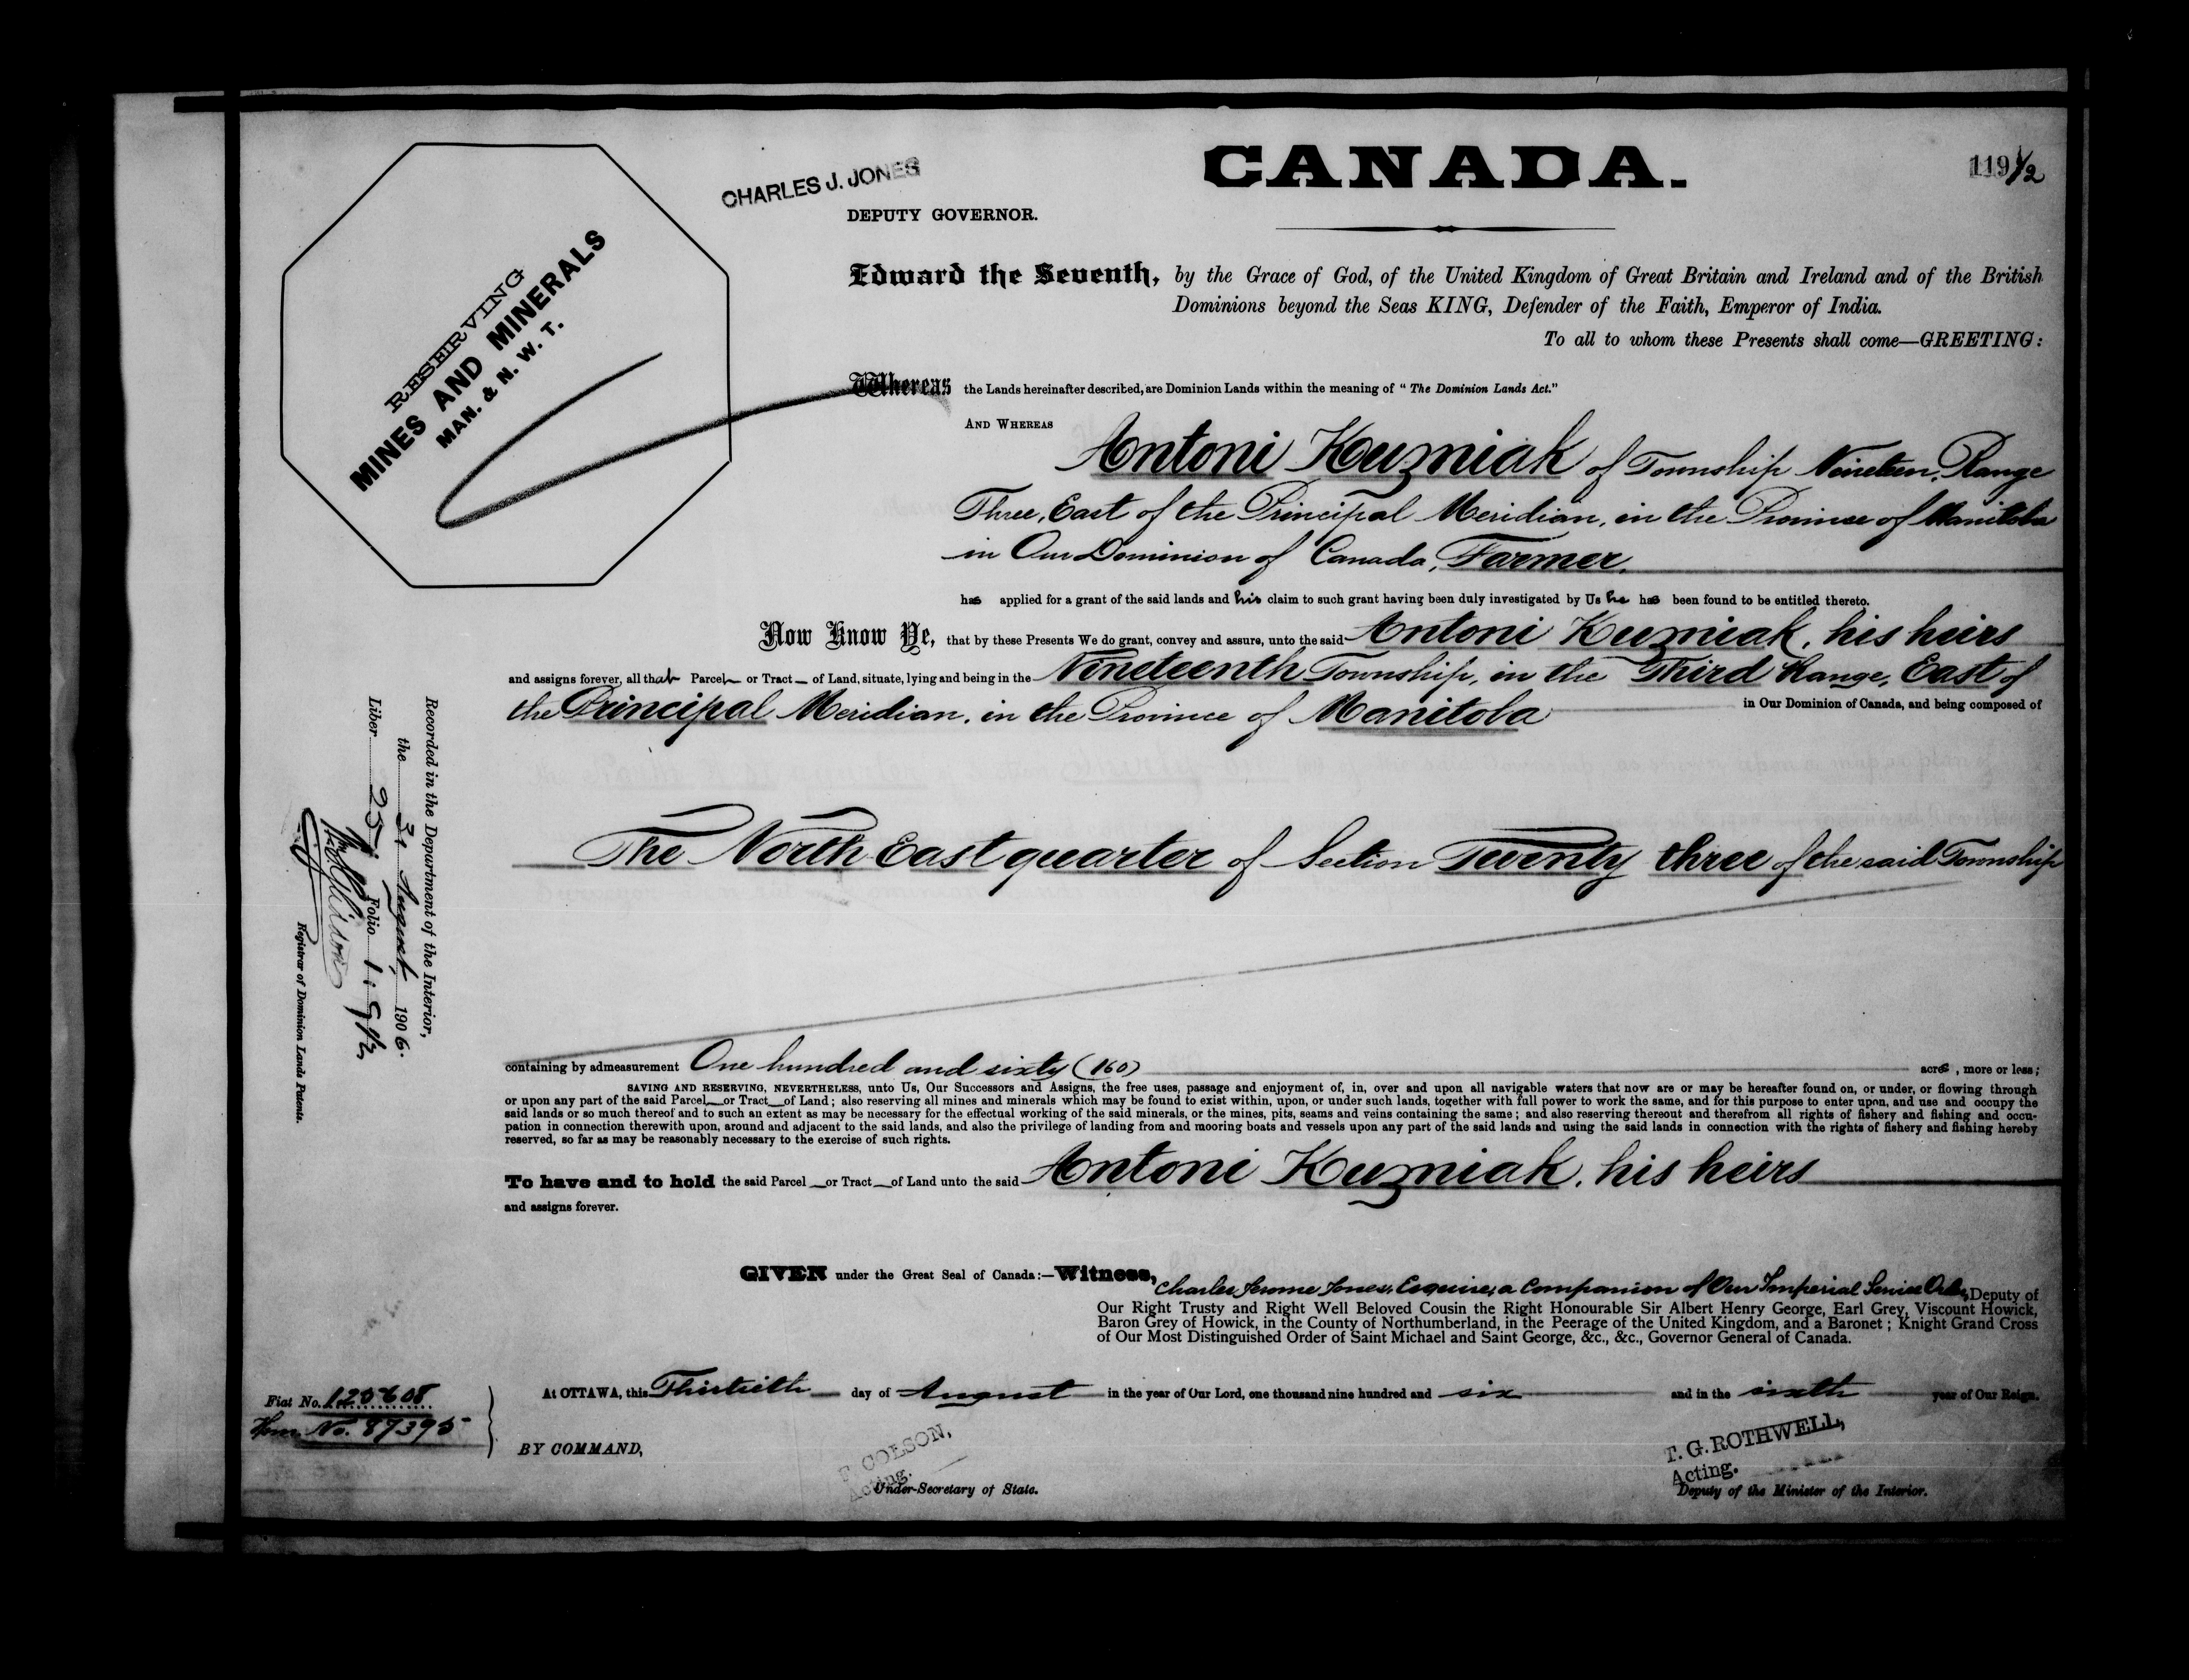 CANADA.
119 1/2
CHARLES J. JONES
DEPUTY GOVERNOR.
RESERVING
MINES AND MINERALS
MAN. & N. W. T.
Edward the Seventh, by the Grace of God, of the United Kingdom of Great Britain and Ireland and of the British
Dominions beyond the Seas KING, Defender of the Faith, Emperor of India.
To all to whom these Presents shall come—GREETING:
Whereas the Lands hereinafter described, are Dominion Lands within the meaning of "The Dominion Lands Act."
AND WHEREAS
Antoni Kuzniak of Township Nineteen, Range
Three, East of the Principal Meridian, in the Province of Manitoba
in Our Dominion of Canada, Farmer,
has applied for a grant of the said lands and his claim to such grant having been duly investigated by Us he has been found to be entitled thereto.
Now Know Ye, that by these Presents We do grant, convey and assure, unto the said Antoni Kuzniak, his heirs
and assigns forever, all that Parcel or Tract of Land, situate, lying and being in the Nineteenth Township, in the Third Range, East of
the Principal Meridian, in the Province of Manitoba in Our Dominion of Canada, and being composed of
The North East quarter of Section Twenty three of the said Township
containing by admeasurement One hundred and sixty (160) acres, more or less;
SAVING AND RESERVING, NEVERTHELESS, unto Us, Our Successors and Assigns, the free uses, passage and enjoyment of, in, over and upon all navigable waters that now are or may be hereafter found on, or under, or flowing through
or upon any part of the said Parcel or Tract of Land; also reserving all mines and minerals which may be found to exist within, upon, or under such lands, together with full power to work the same, and for this purpose to enter upon, and use and occupy the
said lands or so much thereof and to such an extent as may be necessary for the effectual working of the said minerals, or the mines, pits, seams and veins containing the same; and also reserving thereout and therefrom all rights of fishery and fishing and occu-
pation in connection therewith upon, around and adjacent to the said lands, and also the privilege of landing from and mooring boats and vessels upon any part of the said lands and using the said lands in connection with the rights of fishery and fishing hereby
reserved, so far as may be reasonably necessary to the exercise of such rights.
To have and to hold the said Parcel or Tract of Land unto the said Antoni Kuzniak, his heirs
and assigns forever.
GIVEN under the Great Seal of Canada:—Witness, Charles Jerome Jones, Esquire, a Companion of Our Imperial Service Order, Deputy of
Our Right Trusty and Right Well Beloved Cousin the Right Honourable Sir Albert Henry George, Earl Grey, Viscount Howick,
Baron Grey of Howick, in the County of Northumberland, in the Peerage of the United Kingdom, and a Baronet; Knight Grand Cross
of Our Most Distinguished Order of Saint Michael and Saint George, &c., &c., Governor General of Canada.
At OTTAWA, this Thirtieth day of August in the year of Our Lord, one thousand nine hundred and six and in the sixth year of Our Reign.
BY COMMAND,
F. COLSON,
Acting.
Under-Secretary of State.
T. G. ROTHWELL,
Acting.
Deputy of the Minister of the Interior.
Fiat No. 125608
Hom. No. 87395
Recorded in the Department of the Interior,
the 31 August 1906.
Liber 25 Folio 119 1/2
Registrar of Dominion Lands Patents.